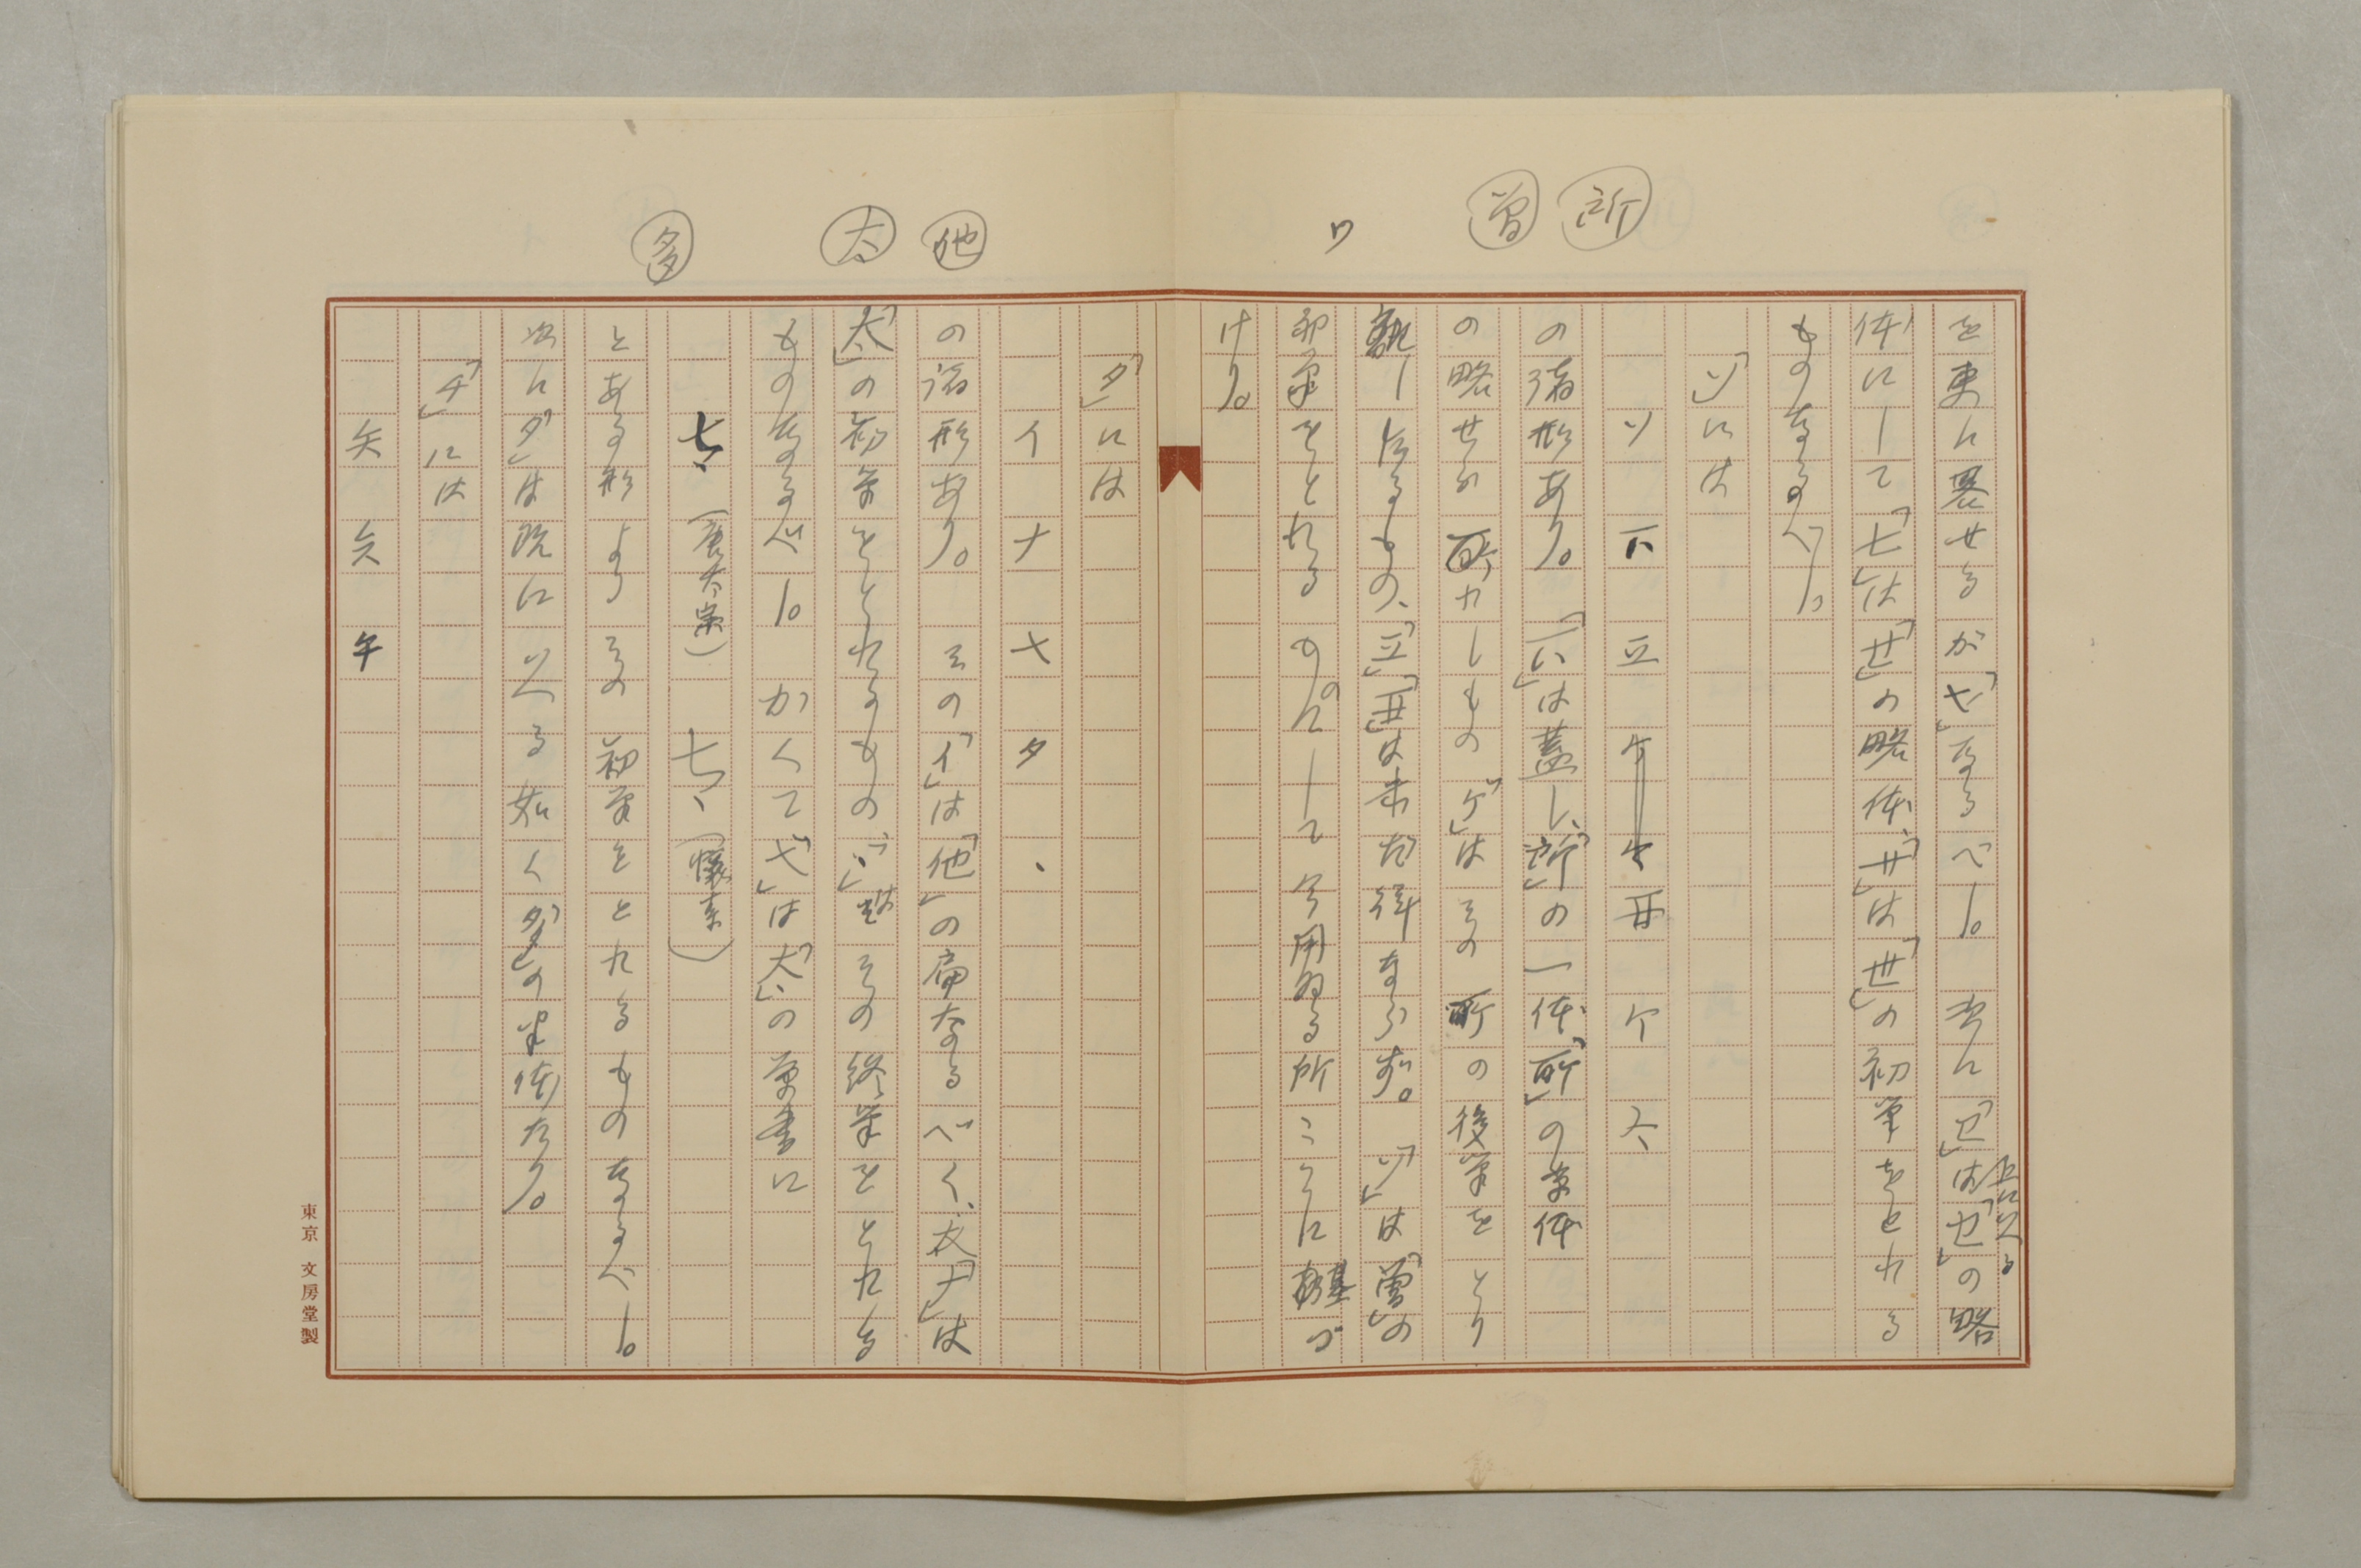 所
曽
ワ
を更に畧せるが「七」なるべし。次に「㔾」は「世」の略
上にいへる
体にして「七」は「せ」の略体、「サ」は「世」の初筆をとれる
ものなるべし。
「ソ」には
ソ 丆 立 ケ 丑 ケ 六
の諸形あり。「丆」は蓋し、「所」の一体「所」の草体
の略せられしもの「ケ」はその所の後筆をとり
しもの、「立」「丑」は未だ詳ならず。「ソ」は「曽」の
初筆をとれるものにして今用ゐる所ここに基づ
けり。
他
太
多
「タ」には
イ ナ 七 タ 、
の諸形あり。その「イ」は「他」の扁なるべく、「ナ」は
「太」の初筆をとれるもの「、」はその終筆をとれる
ものなるべし。かくて「七」は「太」の草書に
(唐太宗) (懐素)
とある形よりその初筆をとれるものなるべし。
次に「タ」は既にいへる如く「多」の半体なり。
「チ」には
矢 矢 午
東京 文房堂製